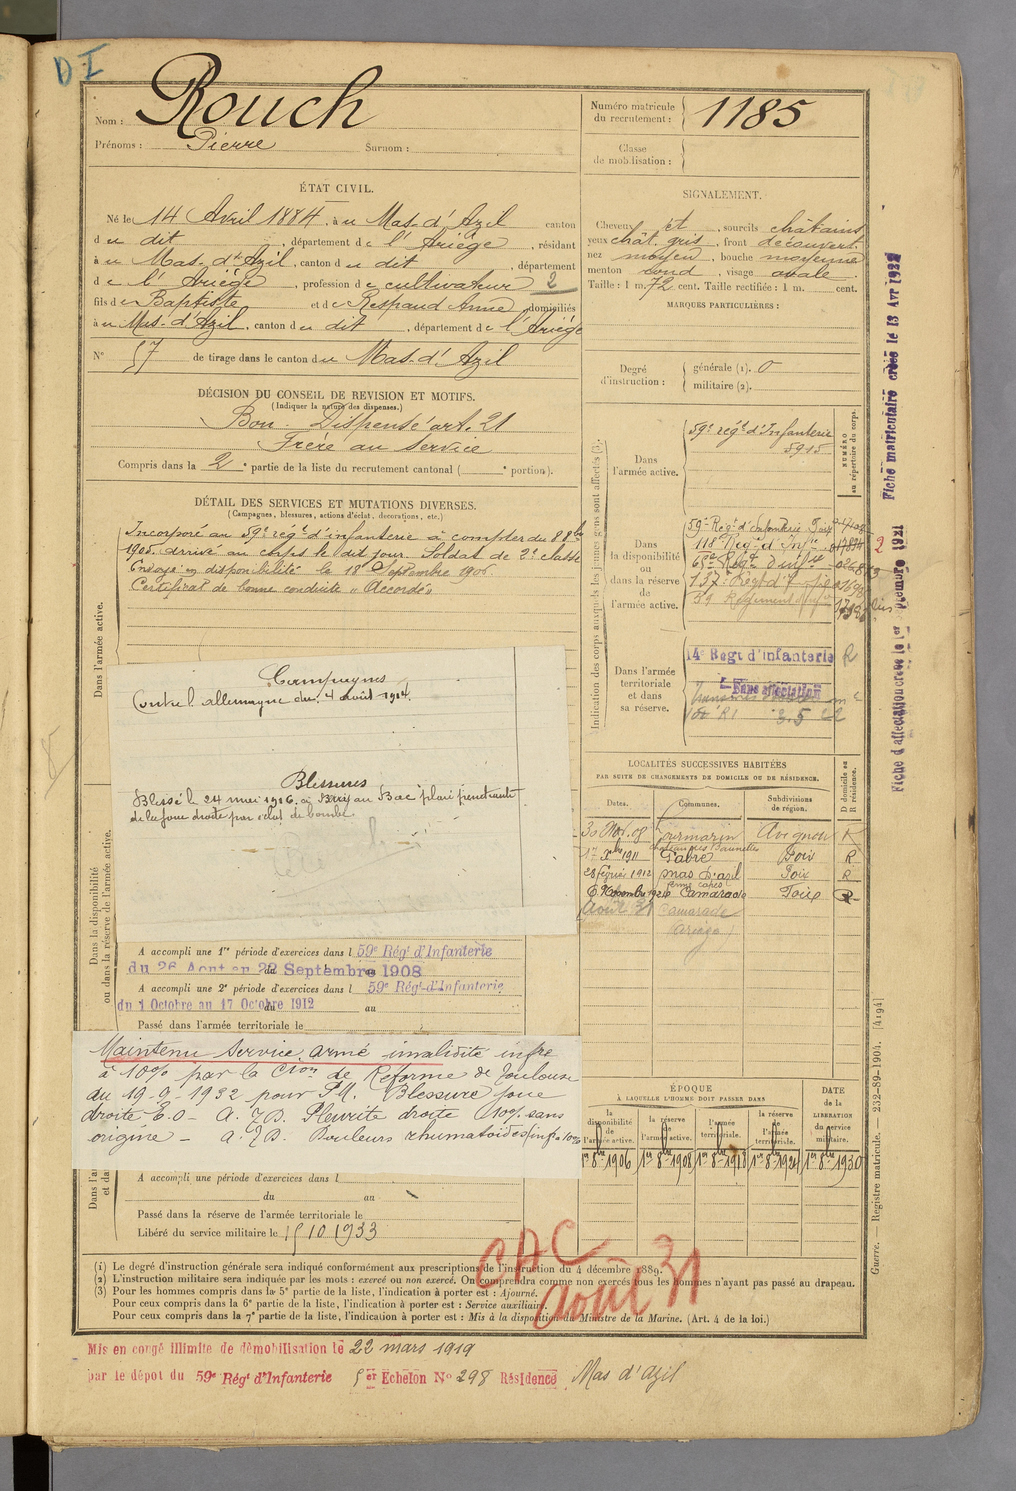 D I
Nom : Rouch
Prénoms : Pierre Surnom :
Numéro matricule du recrutement : 1185
Classe de mobilisation :
ÉTAT CIVIL.
Né le 14 Avril 1884, à u Mas-d'Azil canton
d u dit, département de l'Ariège, résidant
à u Mas-d'Azil, canton d u dit, département
d e l'Ariège, profession de cultivateur 2
fils de Baptiste et de Respaud Anne domiciliés
à u Mas-d'Azil, canton d u dit, département de l'Ariége
N° 57 de tirage dans le canton du Mas-d'Azil
SIGNALEMENT.
Cheveux et, sourcils châtains
yeux chât. gris, front découvert.
nez moyen, bouche moyenne
menton rond, visage ovale.
Taille : 1 m. 72 cent. Taille rectifiée : 1 m. cent.
MARQUES PARTICULIÈRES :
Degré d'instruction : générale (1). 0
militaire (2).
DÉCISION DU CONSEIL DE REVISION ET MOTIFS.
(Indiquer la nature des dispenses.)
Bon - Dispensé art. 21
Frère au service
Compris dans la 2e partie de la liste du recrutement cantonal ( e portion).
DÉTAIL DES SERVICES ET MUTATIONS DIVERSES.
(Campagnes, blessures, actions d'éclat, décorations, etc.)
Dans l'armée active.
Incorporé au 59e régt d'infanterie à compter du 8 8bre
1905. arrivé au corps le dit jour. Soldat de 2e classe
Envoyé en disponibilité le 18 Septembre 1906.
Certificat de bonne conduite "Accordé"
Campagnes
Contre l'allemagne du 4 août 1914.
Blessures
Blessé le 24 mai 1916 à Berry au Bac plaie pénétrante
de la joue droite par éclat de bombe
Dans la disponibilité ou dans la réserve de l'armée active.
A accompli une 1re période d'exercices dans l 59e Régt d'Infanterie
du 26 Aout au 22 Septembre 1908
A accompli une 2e période d'exercices dans l 59e Régt d'Infanterie
du 1 Octobre au 17 Octobre 1912 au
Passé dans l'armée territoriale le
Maintenu Service armé invalidité infre
à 10% par la Cion de Réforme de Toulouse
du 19-9-1932 pour P.M. Blessure joue
droite - E.O - A. J.D. Pleurite droite 10% sans
origine - A. J.D. Douleurs rhumatoïdes inf à 10%
A accompli une période d'exercices dans l
du au
Passé dans la réserve de l'armée territoriale le
Libéré du service militaire le 15 10 1933
Indication des corps auxquels les jeunes gens sont affectés (3).
NUMÉRO au répertoire du corps.
Dans l'armée active.
59e régt d'Infanterie
5915
Dans la disponibilité ou dans la réserve de l'armée active.
59e Régt d'Infanterie Foix
118 Regt d'Infie
137e Régt d'I
59 Régiment d'Infie
Dans l'armée territoriale et dans sa réserve.
14e Regt d'Infanterie R
Sans affectation
LOCALITÉS SUCCESSIVES HABITÉES
PAR SUITE DE CHANGEMENTS DE DOMICILE OU DE RÉSIDENCE.
Dates. Communes. Subdivisions de région. D domicile ou R résidence.
30 Nov. 08 Lourmarin Avignon R
17 Xbre 1911 Gabre Foix R
28 février 1912 Mas d'azil Foix R
6 Novembre 1920 Camarade Foix R
Août 31 Camarade
(Ariège)
ÉPOQUE
À LAQUELLE L'HOMME DOIT PASSER DANS
la disponibilité de l'armée active.
la réserve de l'armée active.
l'armée territoriale.
la réserve de l'armée territoriale.
DATE de la LIBÉRATION du service militaire.
1er 8bre 1906 1er 8bre 1908 1er 8bre 1918 1er 8bre 1924 1er 8bre 1930
CAC
août 31
(1) Le degré d'instruction générale sera indiqué conformément aux prescriptions de l'instruction du 4 décembre 1889.
(2) L'instruction militaire sera indiquée par les mots : exercé ou non exercé. On comprendra comme non exercés tous les hommes n'ayant pas passé au drapeau.
(3) Pour les hommes compris dans la 5e partie de la liste, l'indication à porter est : Ajourné.
Pour ceux compris dans la 6e partie de la liste, l'indication à porter est : Service auxiliaire.
Pour ceux compris dans la 7e partie de la liste, l'indication à porter est : Mis à la disposition du Ministre de la Marine. (Art. 4 de la loi.)
Mis en congé illimité de démobilisation le 22 mars 1919
par le dépot du 59e Régt d'Infanterie 5er Echelon N° 298 Résidence Mas d'Azil
Fiche matriculaire créée le 13 Avr 1922
Fiche d'affectation créée le 1er
Guerre. — Registre matricule. — 232-89-1904. [4194]